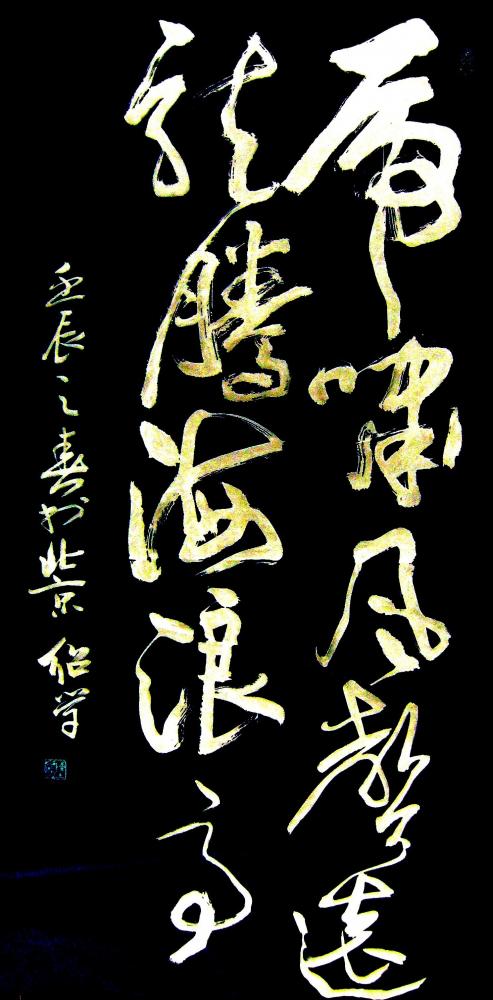 虎啸风声远
龙腾海浪高
壬辰之春于北京 绍学